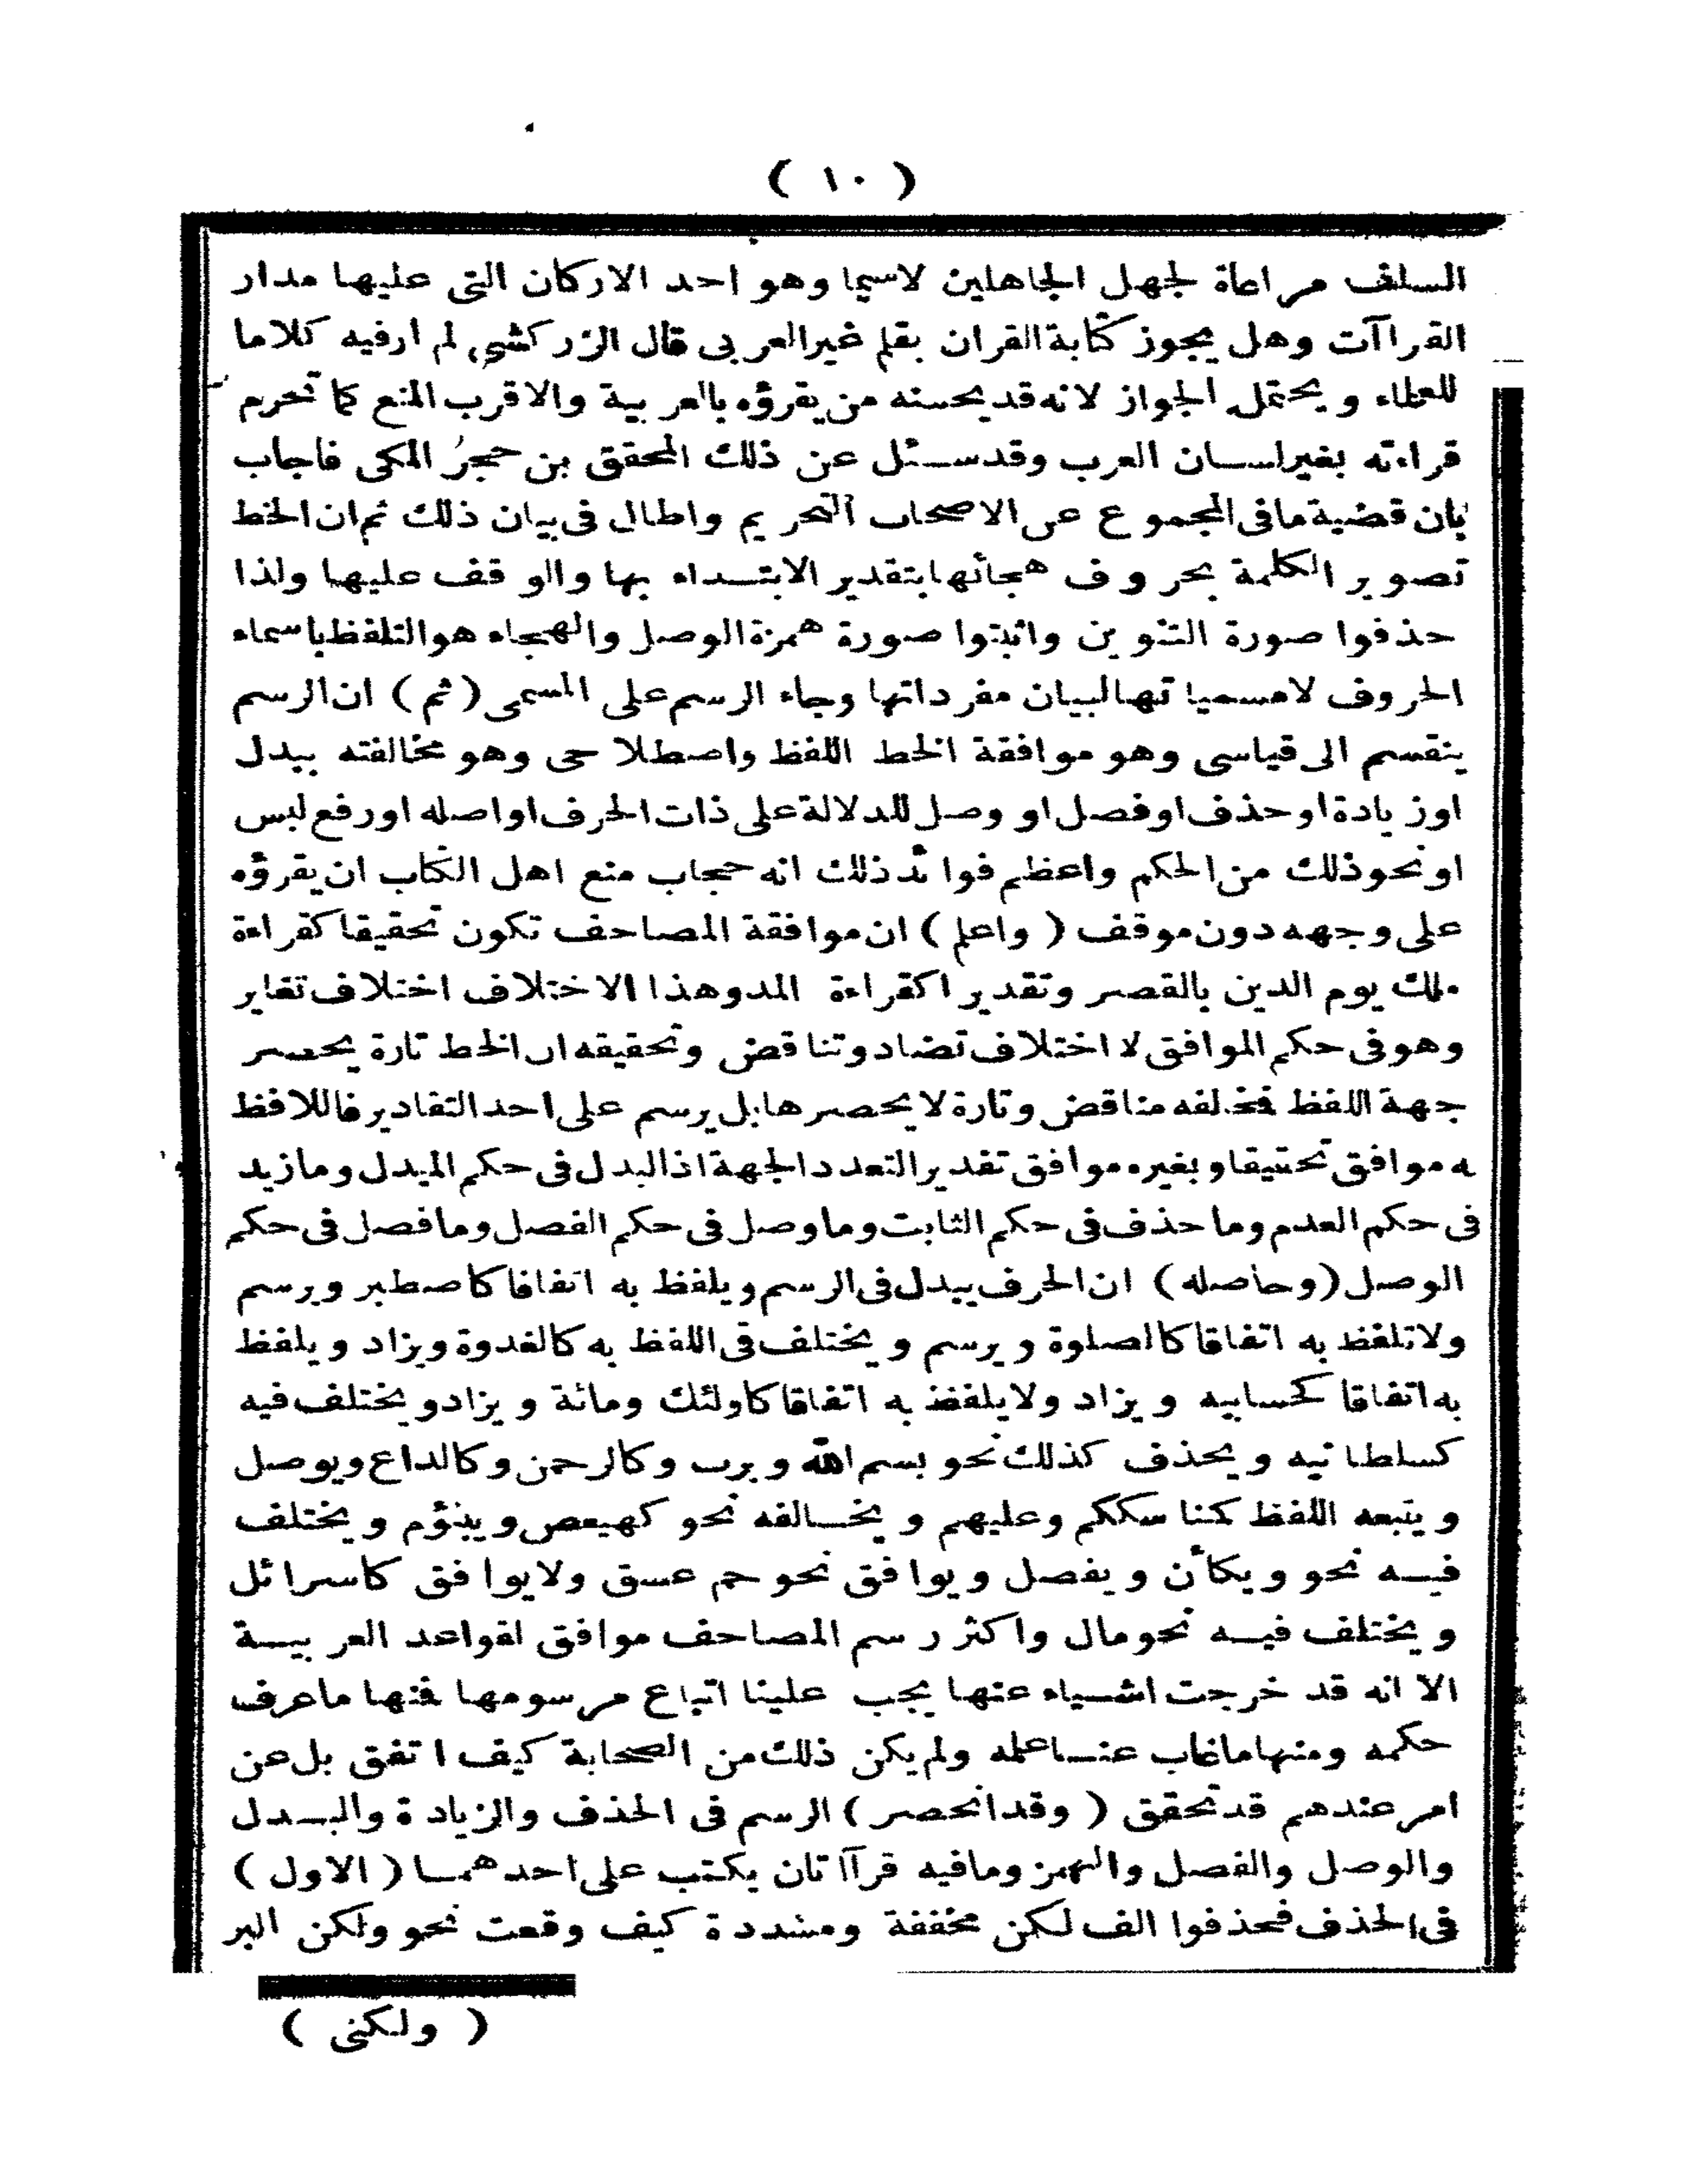 ( ١٠ )
السلف مراعاة لجهل الجاهلين لاسيما وهو احد الاركان التى عليها مدار
القراآت وهل يجوز كتابة القران بقلم غير العربى قال الزركشى لم ار فيه كلاما
للعلماء ويحتمل الجواز لانه قد يحسنه من يقرؤه بالعربية والاقرب المنع كما تحرم
قراءته بغير لسان العرب وقد سئل عن ذلك المحقق بن حجر المكى فاجاب
بان قضية ما فى المجموع عن الاصحاب التحريم واطال فى بيان ذلك ثم ان الخط
تصوير الكلمة بحروف هجائها بتقدير الابتداء بها والوقف عليها ولذا
حذفوا صورة التنوين واثبتوا صورة همزة الوصل والهجاء هو التلفظ باسماء
الحروف لا مسمياتها لبيان مفرداتها وجاء الرسم على المسمى ( ثم ) ان الرسم
ينقسم الى قياسى وهو موافقة الخط اللفظ واصطلاحى وهو مخالفته ببدل
او زيادة او حذف او فصل او وصل للدلالة على ذات الحرف او اصله او رفع لبس
او نحو ذلك من الحكم واعظم فوائد ذلك انه حجاب منع اهل الكتاب ان يقرؤه
على وجهه دون موقف ( واعلم ) ان موافقة المصاحف تكون تحقيقا كقراءة
ملك يوم الدين بالقصر وتقديرا كقراءة المد وهذا الاختلاف اختلاف تغاير
وهو فى حكم الموافق لا اختلاف تضاد وتناقض وتحقيقه ان الخط تارة يحصر
جهة اللفظ فمخالفه مناقض وتارة لا يحصرها بل يرسم على احد التقادير فاللافظ
به موافق تحقيقا وبغيره موافق تقديرا لتعدد الجهة اذ البدل فى حكم المبدل وما زيد
فى حكم العدم وما حذف فى حكم الثابت وما وصل فى حكم الفصل وما فصل فى حكم
الوصل ( وحاصله ) ان الحرف يبدل فى الرسم ويلفظ به اتفاقا كاصطبر ويرسم
ولا تلفظ به اتفاقا كالصلوة ويرسم ويختلف فى اللفظ به كالغدوة ويزاد ويلفظ
به اتفاقا كحسابيه ويزاد ولا يلفظ به اتفاقا كاولئك ومائة ويزاد ويختلف فيه
كسلطانيه ويحذف كذلك نحو بسم الله ويرب وكالرحمن وكالداع ويوصل
ويتبعه اللفظ كمناسككم وعليهم ويخالفه نحو كهيعص ويبنؤم ويختلف
فيه نحو ويكأن ويفصل ويوافق نحو حم عسق ولا يوافق كاسرائل
ويختلف فيه نحو مال واكثر رسم المصاحف موافق لقواعد العربية
الا انه قد خرجت اشياء عنها يجب علينا اتباع مرسومها فمنها ما عرف
حكمه ومنها ما غاب عنا علمه ولم يكن ذلك من الصحابة كيف اتفق بل عن
امر عندهم قد تحقق ( وقد انحصر ) الرسم فى الحذف والزيادة والبدل
والوصل والفصل والهمز وما فيه قراآتان يكتب على احدهما ( الاول )
فى الحذف فحذفوا الف لكن مخففة ومشددة كيف وقعت نحو ولكن البر
( ولكنى )